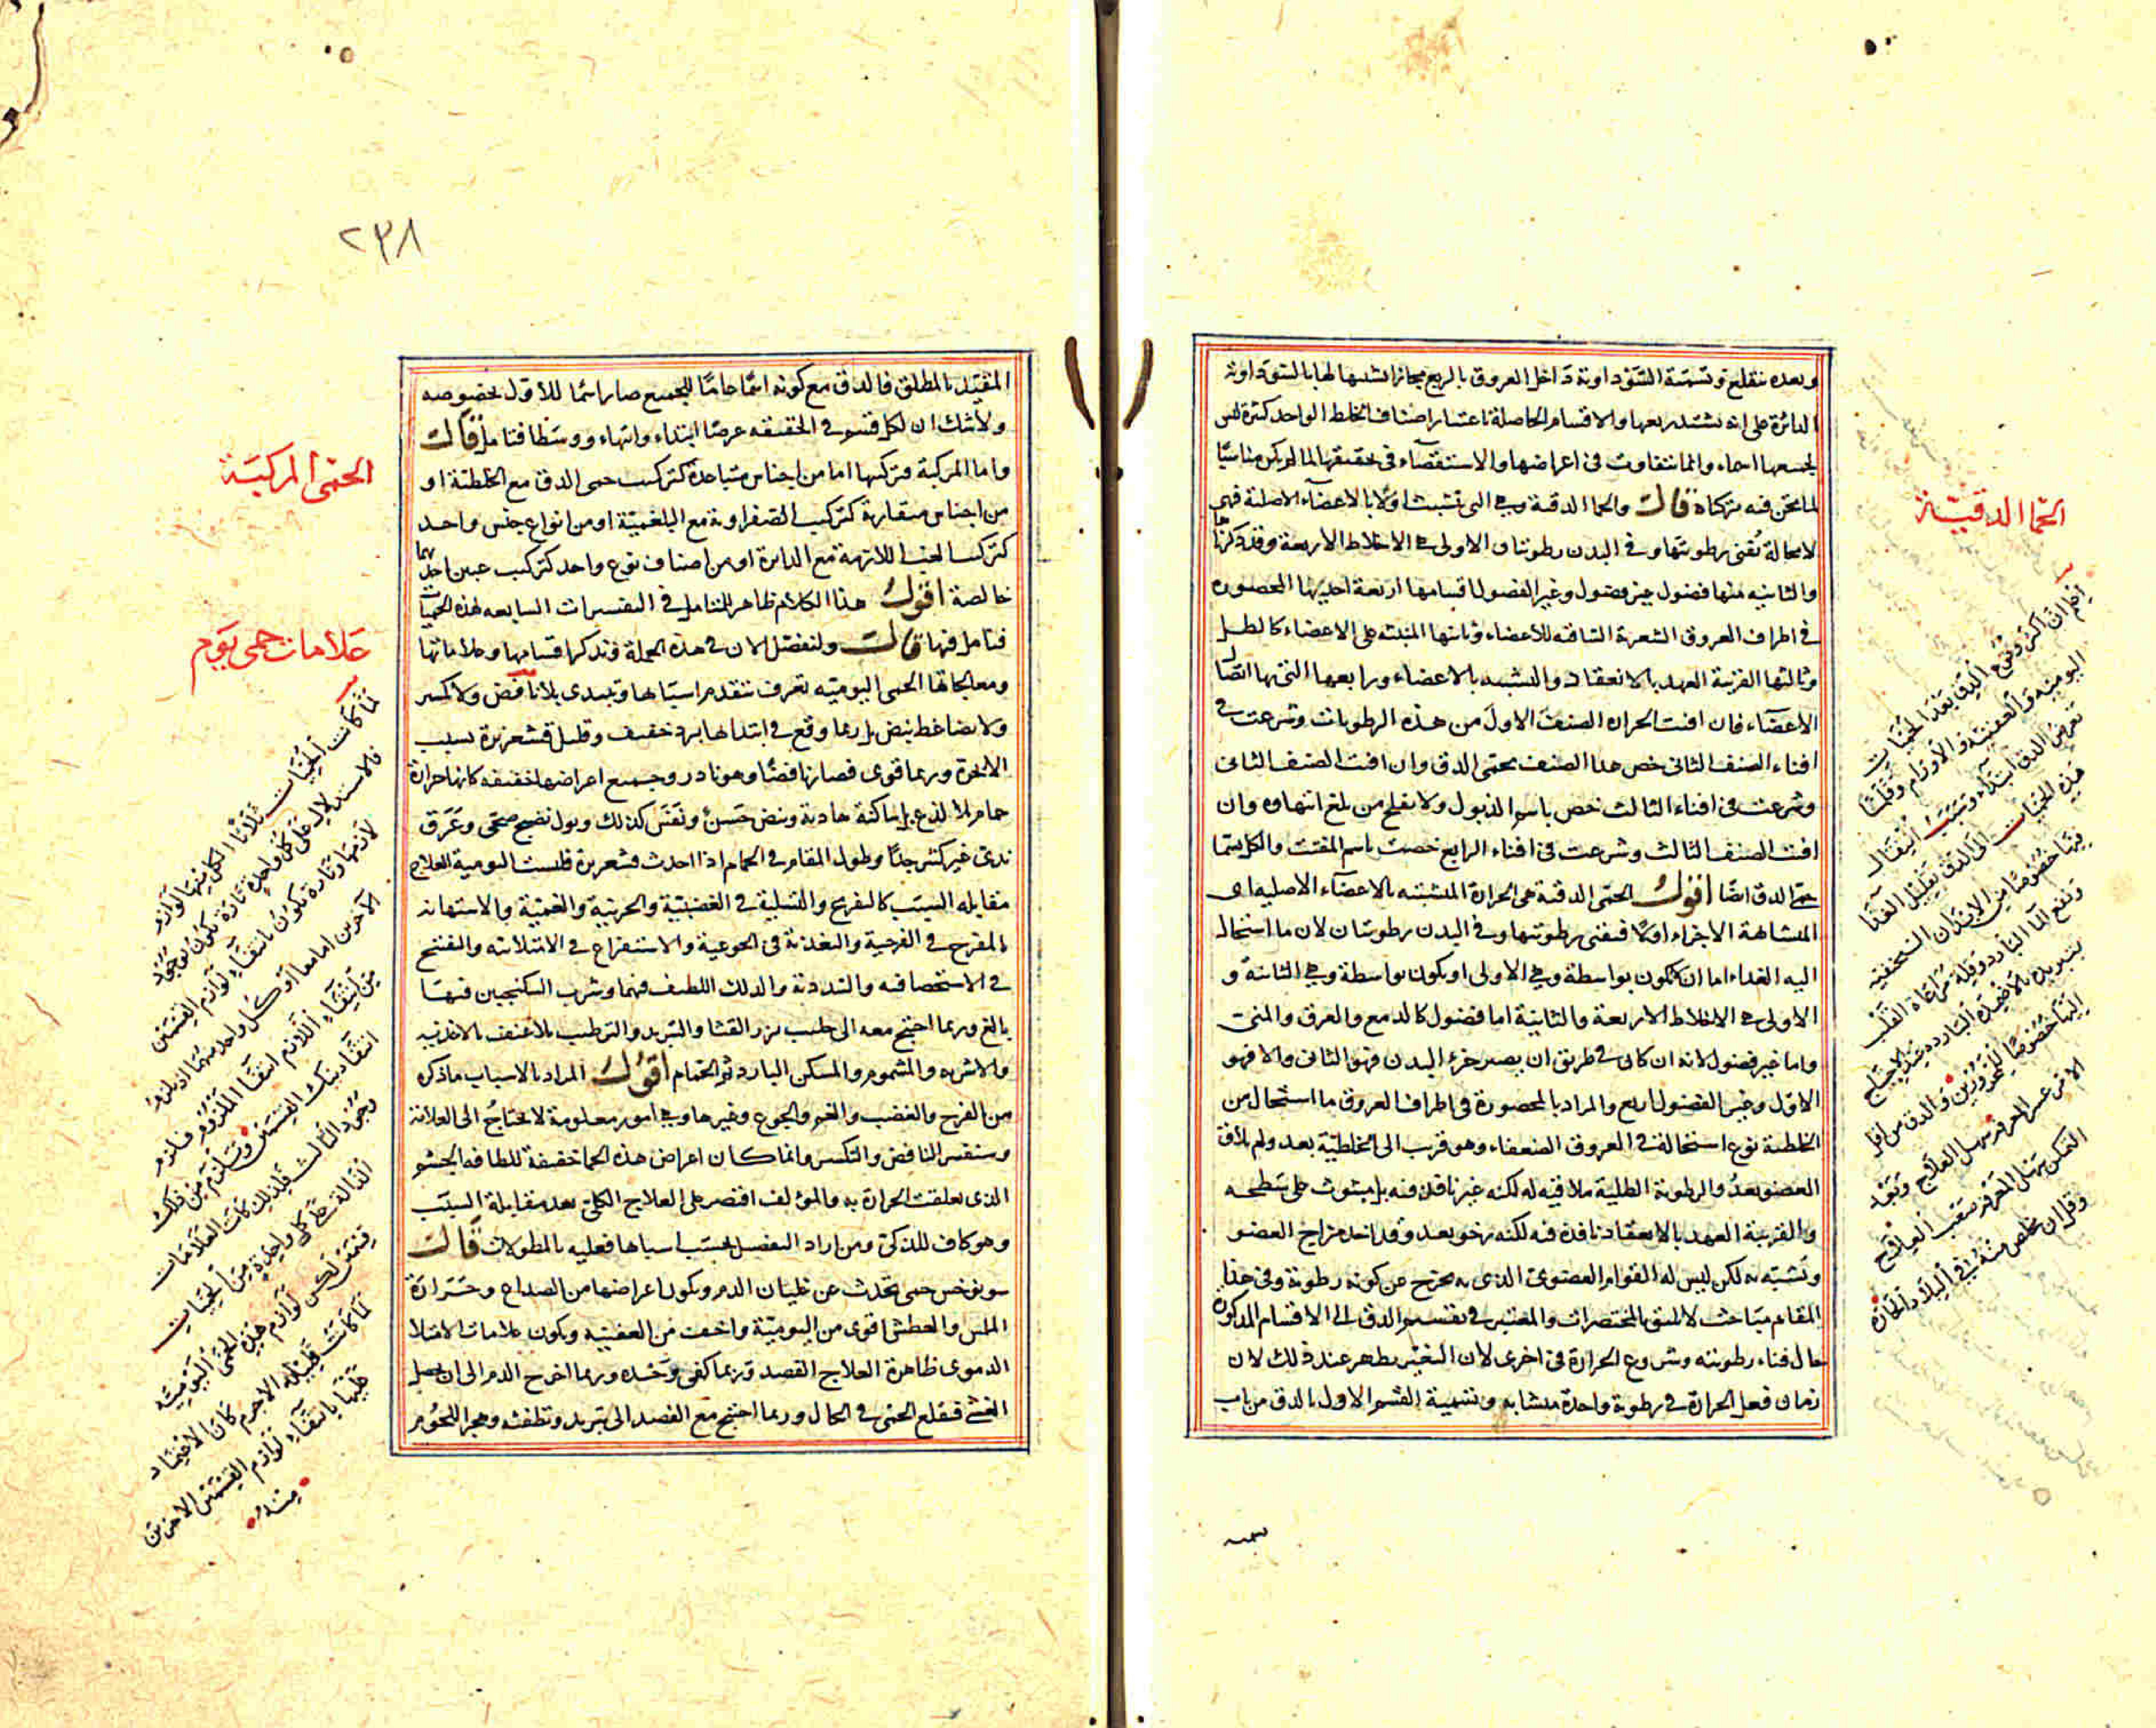 وبعده تقلع وتسمية السوداوية داخل العروق بالربع مجازا لشبهها لها بالسوداوية
الدائرة على انه يشتد ربعها والاقسام الحاصلة باعتبار اصناف الخلط الواحد كثيرة ليس
لجميعها اسماء وانما تتفاوت فى اعراضها والاستقصاء فى تحقيقها لما لم يكن مناسبا
لما نحن فيه تركناه قال والحما الدقية وهى التى تشبثت اولا بالاعضاء الاصلية فهى
لا محالة تفنى رطوبتها وفى البدن رطوبتان الاولى هى الاخلاط الاربعة وقد ذكرناها
والثانية منها فضول وغير فضول وغير الفضول اقسامها اربعة احديها المحصورة
فى اطراف العروق الشعرية الساقية للاعضاء وثانيتها المنبثة على الاعضاء كالطل
وثالثتها القريبة العهد بالانعقاد والتشبه بالاعضاء ورابعها التى بها اتصال
الاعضاء فان افنت الحرارة الصنف الاول من هذه الرطوبات وشرعت فى
افناء الصنف الثانى خص هذا الصنف بحمى الدق وان افنت الصنف الثانى
وشرعت فى افناء الثالث خص باسم الذبول ولا يفلح من بلغ انتهاوه وان
افنت الصنف الثالث وشرعت فى افناء الرابع خصت باسم المفتت والكل يسمى
حمى الدق ايضا اقول الحمى الدقية هى الحرارة المتشبثة بالاعضاء الاصلية اى
المتشابهة الاجزاء اولا فيفنى رطوبتها وفى البدن رطوبتان لان ما استحال
اليه الغذاء اما ان لا يكون بواسطة وهى الاولى او يكون بواسطة وهى الثانية و
الاولى هى الاخلاط الاربعة والثانية اما فضول كالدمع والعرق والمنى
واما غير فضول لانه ان كان فى طريق ان يصير جزء البدن فهو الثانى والا فهو
الاول وغير الفضول اربع والمراد بالمحصورة فى اطراف العروق ما استحال من
الخلطية نوع استحالة فى العروق الضعفاء وهو قريب الى الخلطية بعد ولم يلاق
العضو بعد والرطوبة الطلية ملاقية له لكنه غير نافذ فيه بل مبثوث على سطحه
والقريبة العهد بالانعقاد نافذة فيه لكنه رخو بعد وقد اخذ مزاج العضو
وتشبه به لكن ليس له القوام العضوى الذى به يخرج عن كونه رطوبة وفى هذا
المقام مباحث لا تليق بالمختصرات والمعتبر فى تقسيم الدق الى الاقسام المذكورة
حال فناء رطوبته وشروع الحرارة فى اخرى لان التغير يظهر عند ذلك لان
زمان فعل الحرارة فى رطوبة واحدة متشابه وتسمية القسم الاول بالدق من باب
الحما الدقية
اعلم ان اكثر وقوع الدق بعد الحميات
اليومية والعفنية والاورام وقلما
تعرض الدق ابتداء وسبب انتقال
هذه الحميات الى الدق تقليل الغذا
فيها خصوصا من الابدان النحيفة
ومنع الماء البارد وقلة مراعاة القلب
بتبريده بالاضمدة الباردة عند الاحتياج
اليها خصوصا للمحرورين والدق من اول
الامر عسر المعرفة سهل العلاج وبعد
التمكن سهل المعرفة صعب العلاج
وقل ان يخلص منه فى البلاد الحارة
٢٣٨
المقيد بالمطلق فالدق مع كونه اسما عاما للجميع صار اسما للاول بخصوصه
ولا شك ان لكل قسم فى الحقيقة عرضا ابتداء وانتهاء ووسطا فتامل قال
واما المركبة فتركبها اما من اجناس متباعدة كتركيب حمى الدق مع الخلطية او
من اجناس متقاربة كتركيب الصفراوية مع البلغمية او من انواع جنس واحد
كتركيب الغب اللازمة مع الدائرة او من اصناف نوع واحد كتركيب غبين احديهما
خالصة اقول هذا الكلام ظاهر للمتامل فى التفسيرات السابقة لهذه الحميات
فتامل فيها قال ولنفصل الان فى هذه الجملة ونذكر اقسامها وعلاماتها
ومعالجاتها الحمى اليومية تعرف بتقدم اسبابها وتبتدى بلا نافض ولا تكسر
ولا بضاغط نبض بل ربما وقع فى ابتدائها برد خفيف وقليل قشعريرة بسبب
الابخرة وربما قوى فصار نافضا وهو نادر وجميع اعراضها خفيفة كانها حرارة
حمام بلا لذع بل ساكنة هادية ونبض حسن ونفس كذلك وبول نضيج صحى وعرق
ندى غير كثير جدا وطول المقام فى الحمام اذا احدث قشعريرة فليست اليومية العلاج
مقابلة السبب كالتفريح والتسلية فى الغضبية والحزنية والغمية والاستهانة
بالمفرح فى الفرحية والتغذية فى الجوعية والاستفراغ فى الامتلائية والتفتيح
فى الاستحصافية والسددية والدلك اللطيف فيهما وشرب السكنجبين فيهما
بالغ وربما احتيج معه الى حليب بزر القثا والتبريد والترطيب بلا عنف بالاغذية
والاشربة والمشموم والمسكن البارد ثم الحمام اقول المراد بالاسباب ما ذكره
من الفرح والغضب والغم والجوع وغيرها وهى امور معلومة لا تحتاج الى العلامة
وستفسر النافض والتكسر وانما كان اعراض هذه الحما خفيفة للطافة الجسم
الذى تعلقت الحرارة به والمؤلف اقتصر على العلاج الكلى بعد مقابلة السبب
وهو كاف للذكى ومن اراد التفصيل بحسب اسبابها فعليه بالمطولات قال
سونوخس حمى تحدث عن غليان الدم ويكون اعراضها من الصداع وحرارة
الملس والعطش اقوى من اليومية واخف من العفنية ويكون علامات الامتلا
الدموى ظاهرة العلاج الفصد وربما كفى وحده وربما اخرج الدم الى ان يحصل
الغشى فيقلع الحمى فى الحال وربما احتيج مع الفصد الى تبريد وتطفئة وهجر اللحوم
الحمى المركبة
علامات حمى يوم
لما كانت الحميات ثلاثا الكل منها لوازم
فالاستدلال على كل واحدة تارة تكون بوجود
لازمها وتارة تكون بانتفاء لوازم القسمين
الآخرين اما معا او كل واحد منهما اذ يلزم
من انتفاء اللازم انتفاء الملزوم فيلزم
انتفاء ذينك القسمين ويلزم من ذلك
وجود الثالث فلذلك كانت العلامات
الدالة على كل واحدة من الحميات
قسمين لكن لوازم هذه الحمى اليومية
لما كانت قليلة لا جرم كان الاعتماد
عليها بانتفاء لوازم القسمين الاخرين
منه